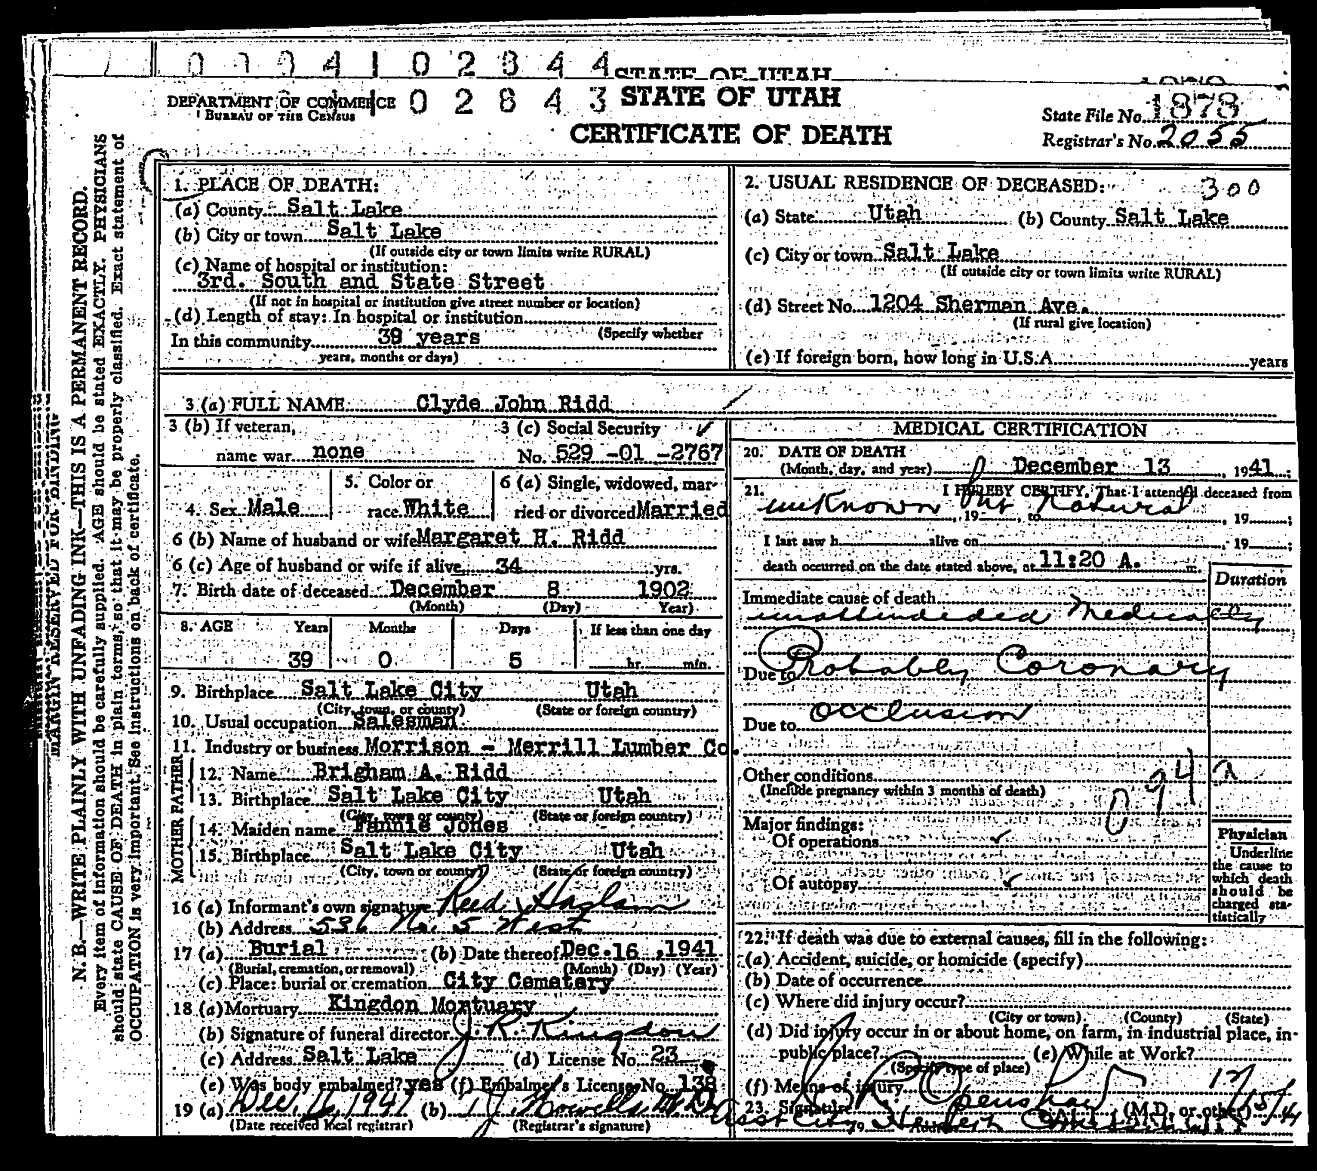 0 0 0 4 1 0 2 8 4 4 STATE OF UTAH
DEPARTMENT OF COMMERCE
BUREAU OF THE CENSUS
0 2 8 4 3
STATE OF UTAH
CERTIFICATE OF DEATH
State File No. 1878
Registrar's No. 2055
MARGIN RESERVED FOR BINDING
N. B.—WRITE PLAINLY WITH UNFADING INK—THIS IS A PERMANENT RECORD.
Every item of information should be carefully supplied. AGE should be stated EXACTLY. PHYSICIANS
should state CAUSE OF DEATH in plain terms, so that it may be properly classified. Exact statement of
OCCUPATION is very important. See instructions on back of certificate.
1. PLACE OF DEATH:
(a) County Salt Lake
(b) City or town Salt Lake
(If outside city or town limits write RURAL)
(c) Name of hospital or institution:
3rd. South and State Street
(If not in hospital or institution give street number or location)
(d) Length of stay: In hospital or institution
(Specify whether
In this community 39 years
years, months or days)
2. USUAL RESIDENCE OF DECEASED: 300
(a) State Utah (b) County Salt Lake
(c) City or town Salt Lake
(If outside city or town limits write RURAL)
(d) Street No. 1204 Sherman Ave.
(If rural give location)
(e) If foreign born, how long in U.S.A. years
3 (a) FULL NAME Clyde John Ridd
3 (b) If veteran,
name war none
3 (c) Social Security
No. 529 -01 -2767
4. Sex Male
5. Color or
race White
6 (a) Single, widowed, mar-
ried or divorced Married
6 (b) Name of husband or wife Margaret H. Ridd
6 (c) Age of husband or wife if alive 34 yrs.
7. Birth date of deceased December 8 1902
(Month) (Day) Year)
8. AGE Years Months Days If less than one day
39 0 5 hr. min.
9. Birthplace Salt Lake City Utah
(City, town, or county) (State or foreign country)
10. Usual occupation Salesman
11. Industry or business Morrison - Merrill Lumber Co.
FATHER
12. Name Brigham A. Ridd
13. Birthplace Salt Lake City Utah
(City, town or county) (State or foreign country)
MOTHER
14. Maiden name Fannie Jones
15. Birthplace Salt Lake City Utah
(City, town or county) (State or foreign country)
16 (a) Informant's own signature Reed Haslam
(b) Address 536 No. 5 West
17 (a) Burial (b) Date thereof Dec. 16, 1941
(Burial, cremation, or removal) (Month) (Day) (Year)
(c) Place: burial or cremation City Cemetery
18 (a) Mortuary Kingdon Mortuary
(b) Signature of funeral director J. R. Kingdon
(c) Address Salt Lake (d) License No. 23
(e) Was body embalmed? yes (f) Embalmer's License No. 138
19 (a) Dec 16, 1941 (b) T J Howells M D
(Date received local registrar) (Registrar's signature)
MEDICAL CERTIFICATION
20. DATE OF DEATH
(Month, day, and year) December 13, 1941;
21. I HEREBY CERTIFY, That I attended deceased from
unknown but Natural, 19 , to , 19 ;
I last saw h alive on , 19 ;
death occurred on the date stated above, at 11:20 A. m.
Duration
Immediate cause of death
unattended Medically
Due to Probably Coronary
Due to occlusion
Other conditions
(Include pregnancy within 3 months of death)
94 a
Major findings:
Of operations
Of autopsy
Physician
Underline
the cause to
which death
should be
charged sta-
tistically
22. If death was due to external causes, fill in the following:
(a) Accident, suicide, or homicide (specify)
(b) Date of occurrence
(c) Where did injury occur?
(City or town) (County) (State)
(d) Did injury occur in or about home, on farm, in industrial place, in
public place? (e) While at Work?
(Specify type of place)
(f) Means of injury
23. Signature Openshaw (M.D. or other) 12/15/41
Asst City Health